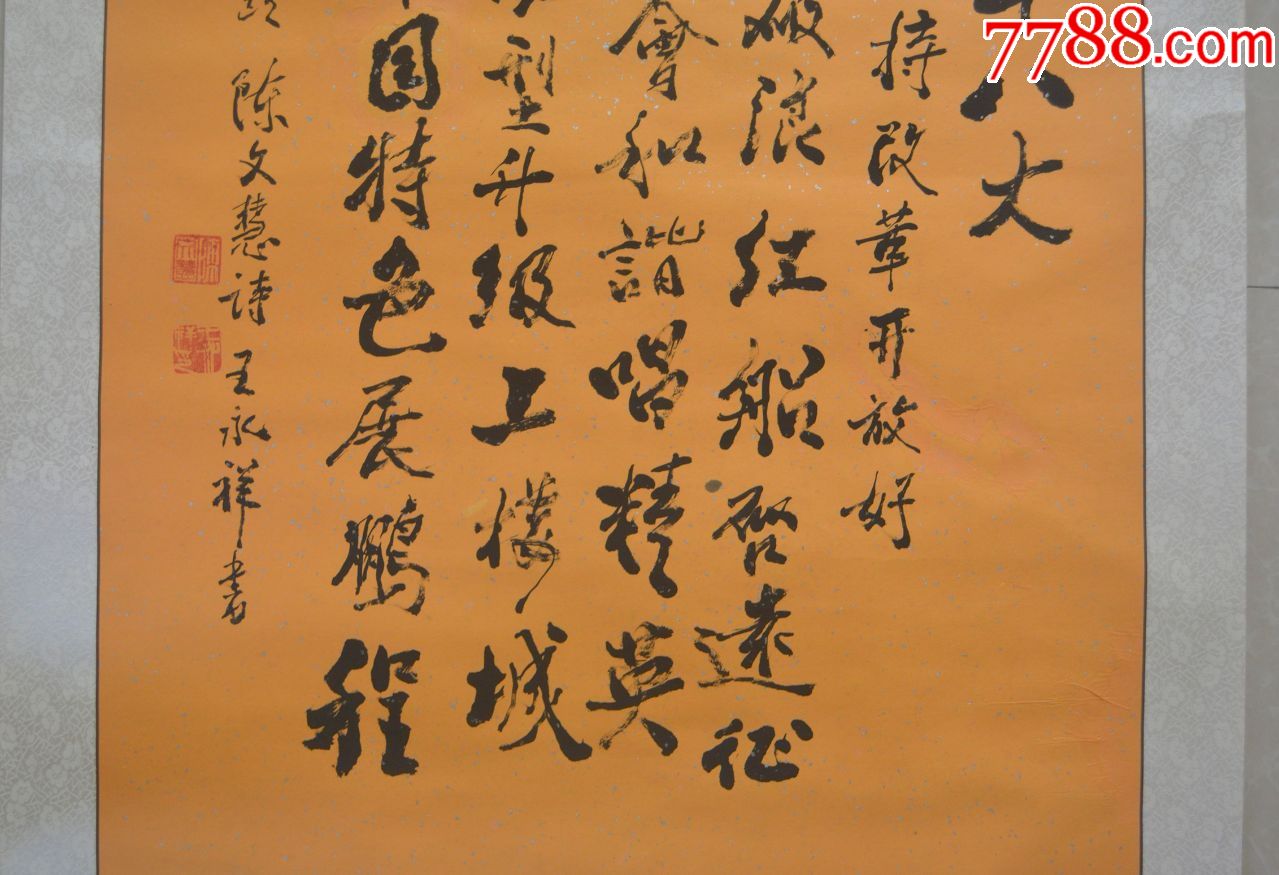 7788.com
大
持改革开放好
破浪红船启遠征
會和谐唱精英
型升级上楼城
国特色展鹏程
陈文慧诗王永祥书